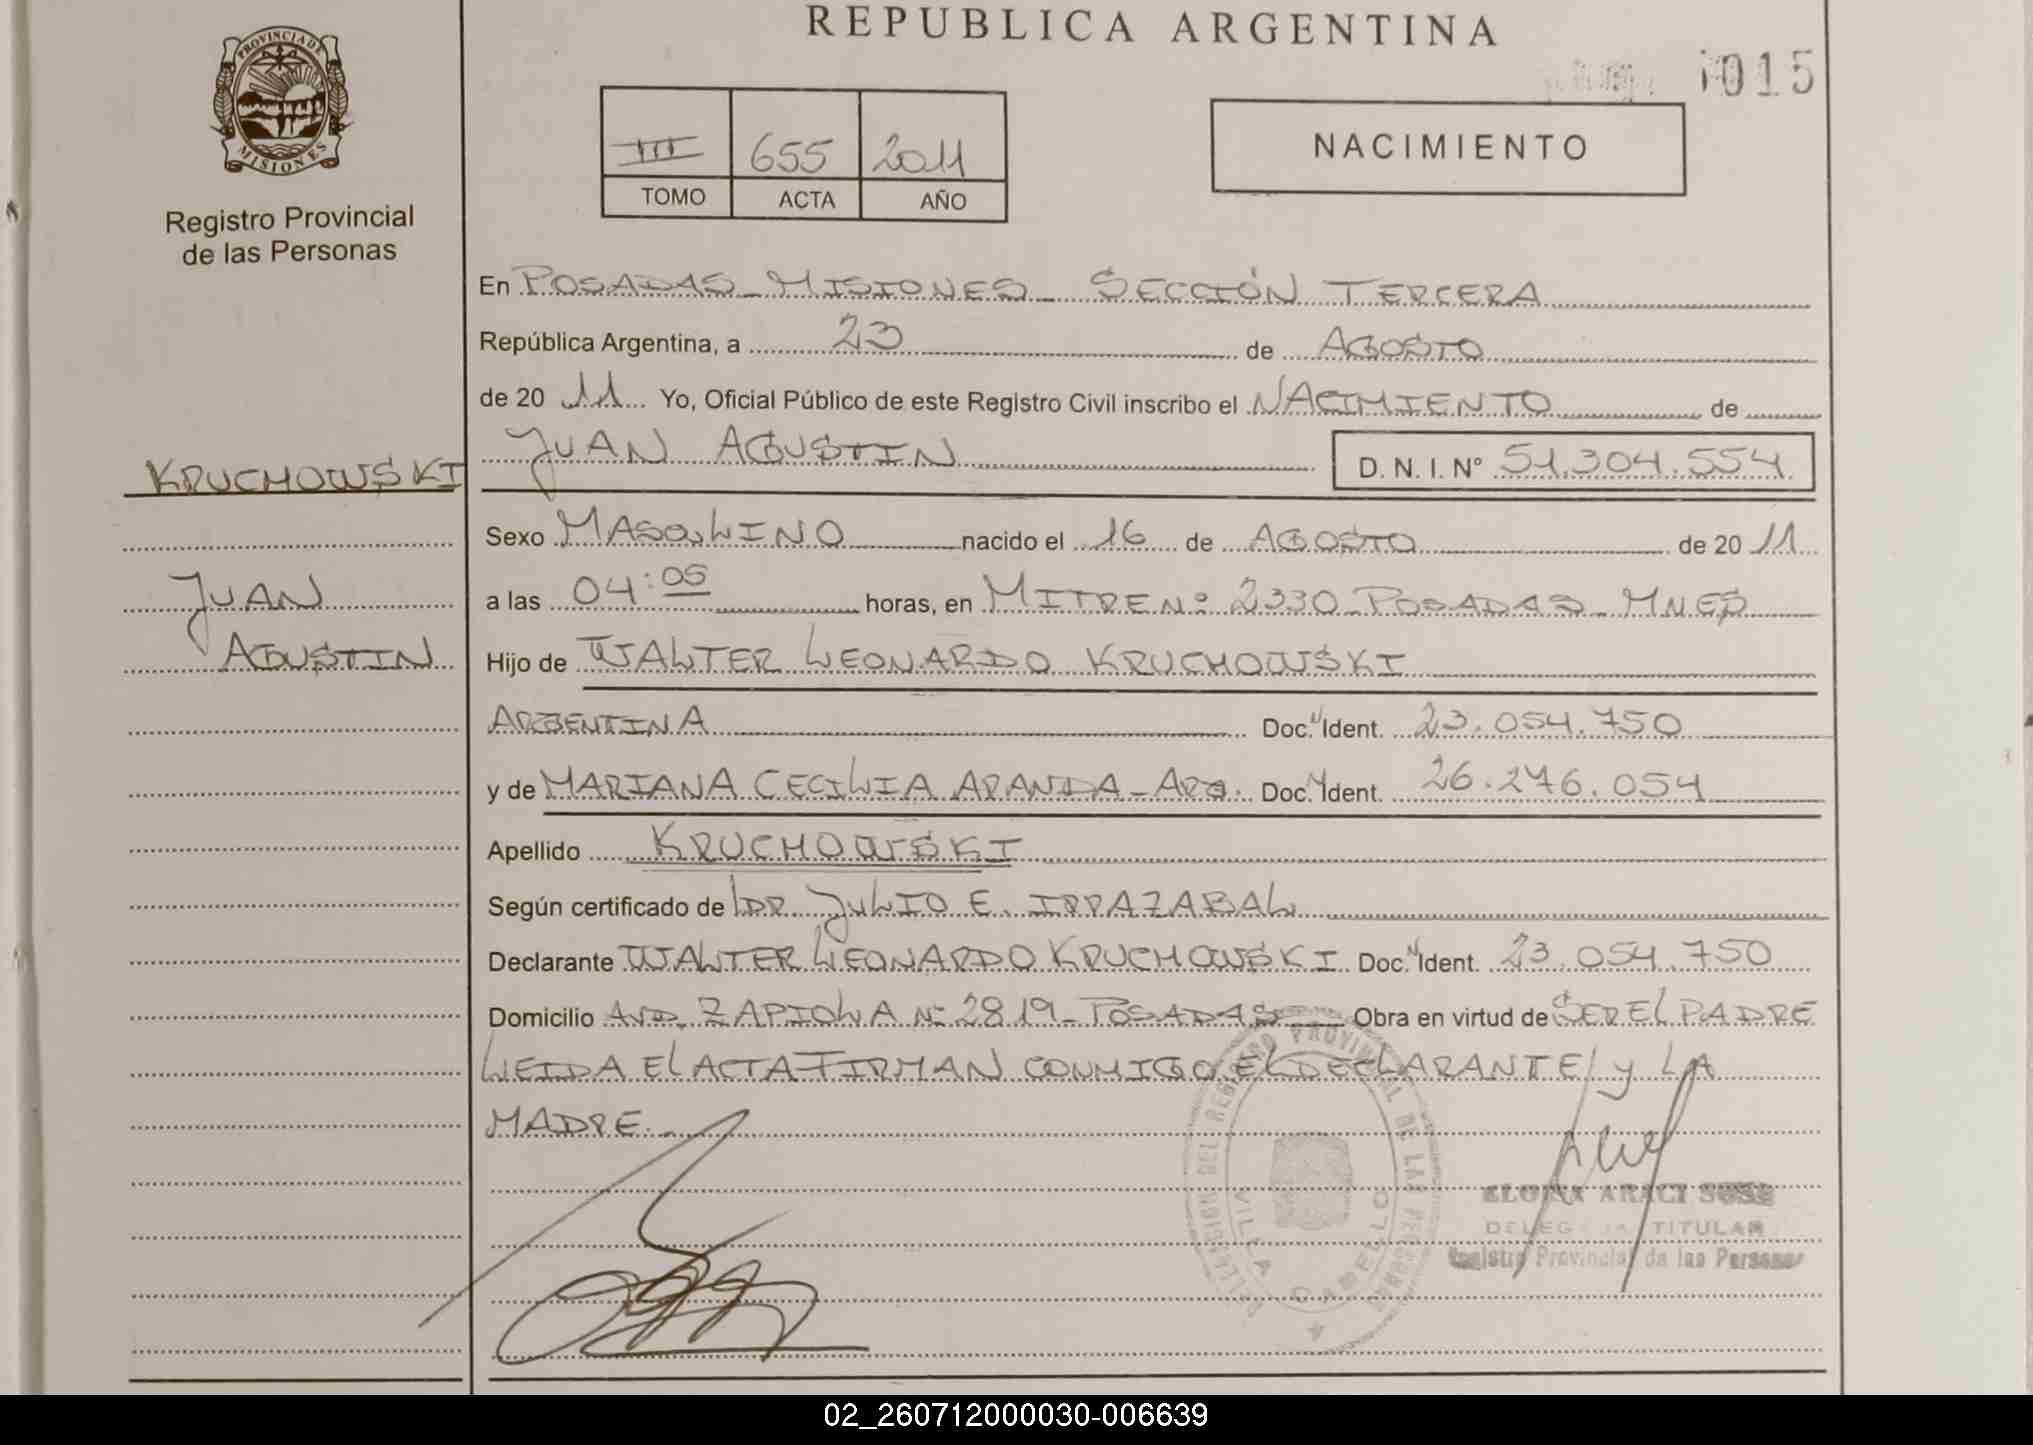 REPUBLICA ARGENTINA
015
PROVINCIA DE
MISIONES
Registro Provincial
de las Personas
III 655 2011
TOMO ACTA AÑO
NACIMIENTO
En POSADAS - MISIONES - SECCIÓN TERCERA
República Argentina, a 23 de AGOSTO
de 20 11 Yo, Oficial Público de este Registro Civil inscribo el NACIMIENTO de
JUAN AGUSTIN D. N. I. Nº 51.304.554
KRUCHOWSKI
JUAN
AGUSTIN
Sexo MASCULINO nacido el 16 de AGOSTO de 20 11
a las 04:05 horas, en MITRE Nº 2330 - POSADAS - MNES
Hijo de WALTER LEONARDO KRUCHOWSKI
ARGENTINA Doc. Ident. 23.054.750
y de MARIANA CECILIA ARANDA - ARG. Doc. Ident. 26.276.054
Apellido KRUCHOWSKI
Según certificado de DR. JULIO E. IRRAZABAL
Declarante WALTER LEONARDO KRUCHOWSKI Doc. Ident. 23.054.750
Domicilio AVD. ZAPIOLA Nº 2819 - POSADAS Obra en virtud de SER EL PADRE
LEIDA EL ACTA FIRMAN CONMIGO EL DECLARANTE/ Y LA
MADRE.-
DELEGACION DEL REGISTRO PROVINCIAL DE LAS PERSONAS
VILLA CABELLO
ARACI
TITULAR
Registro Provincial de las Personas
02_260712000030-006639